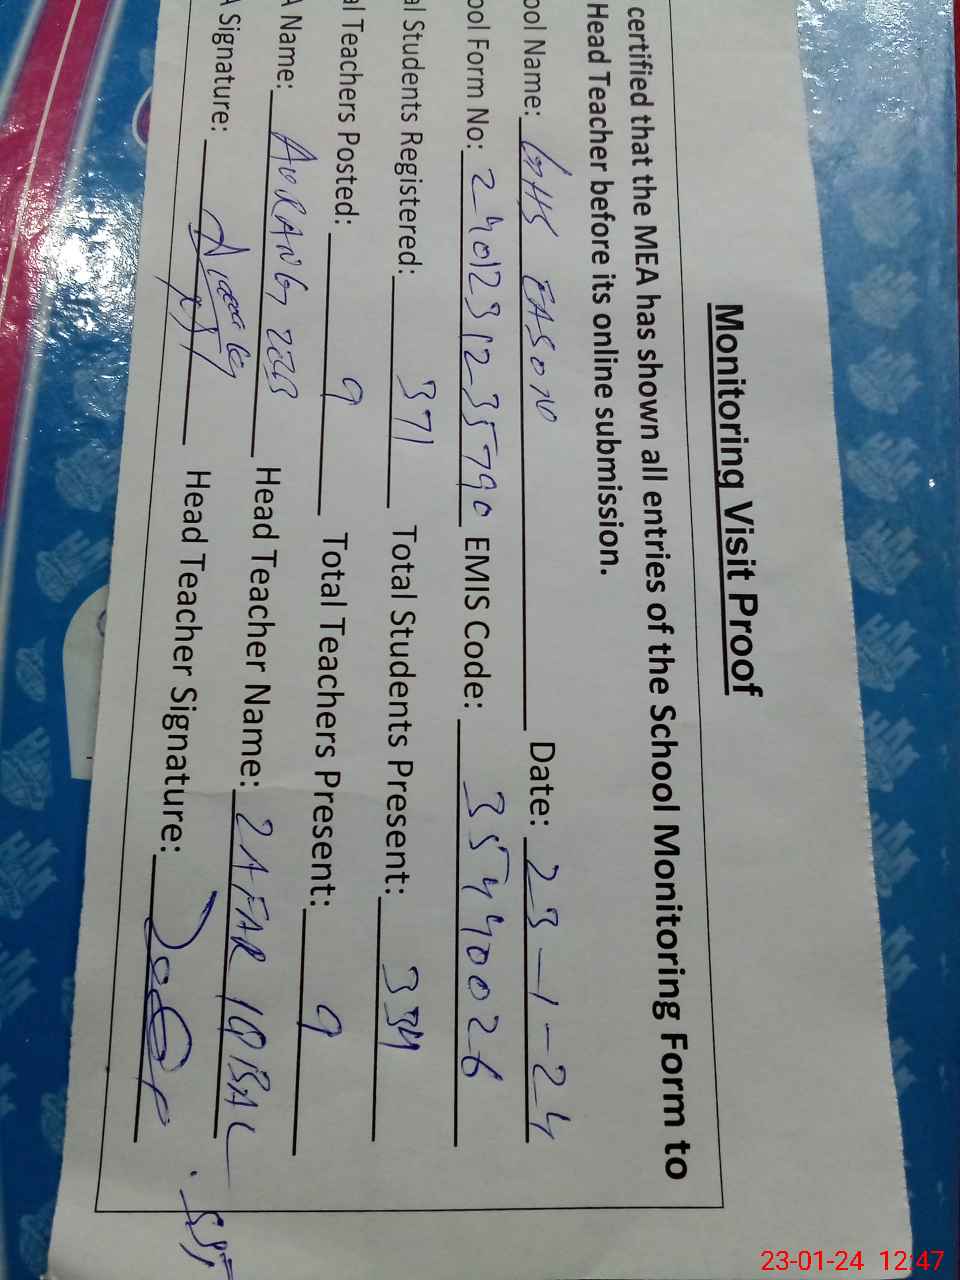 Monitoring Visit Proof
certified that the MEA has shown all entries of the School Monitoring Form to
Head Teacher before its online submission.
ool Name: GHS EASON Date: 23-1-24
ool Form No: 2401231235790 EMIS Code: 35440026
al Students Registered: 371 Total Students Present: 334
al Teachers Posted: 9 Total Teachers Present: 9
A Name: AURANG ZEB Head Teacher Name: ZAFAR IQBAL
A Signature: Head Teacher Signature:
SST
23-01-24 12:47